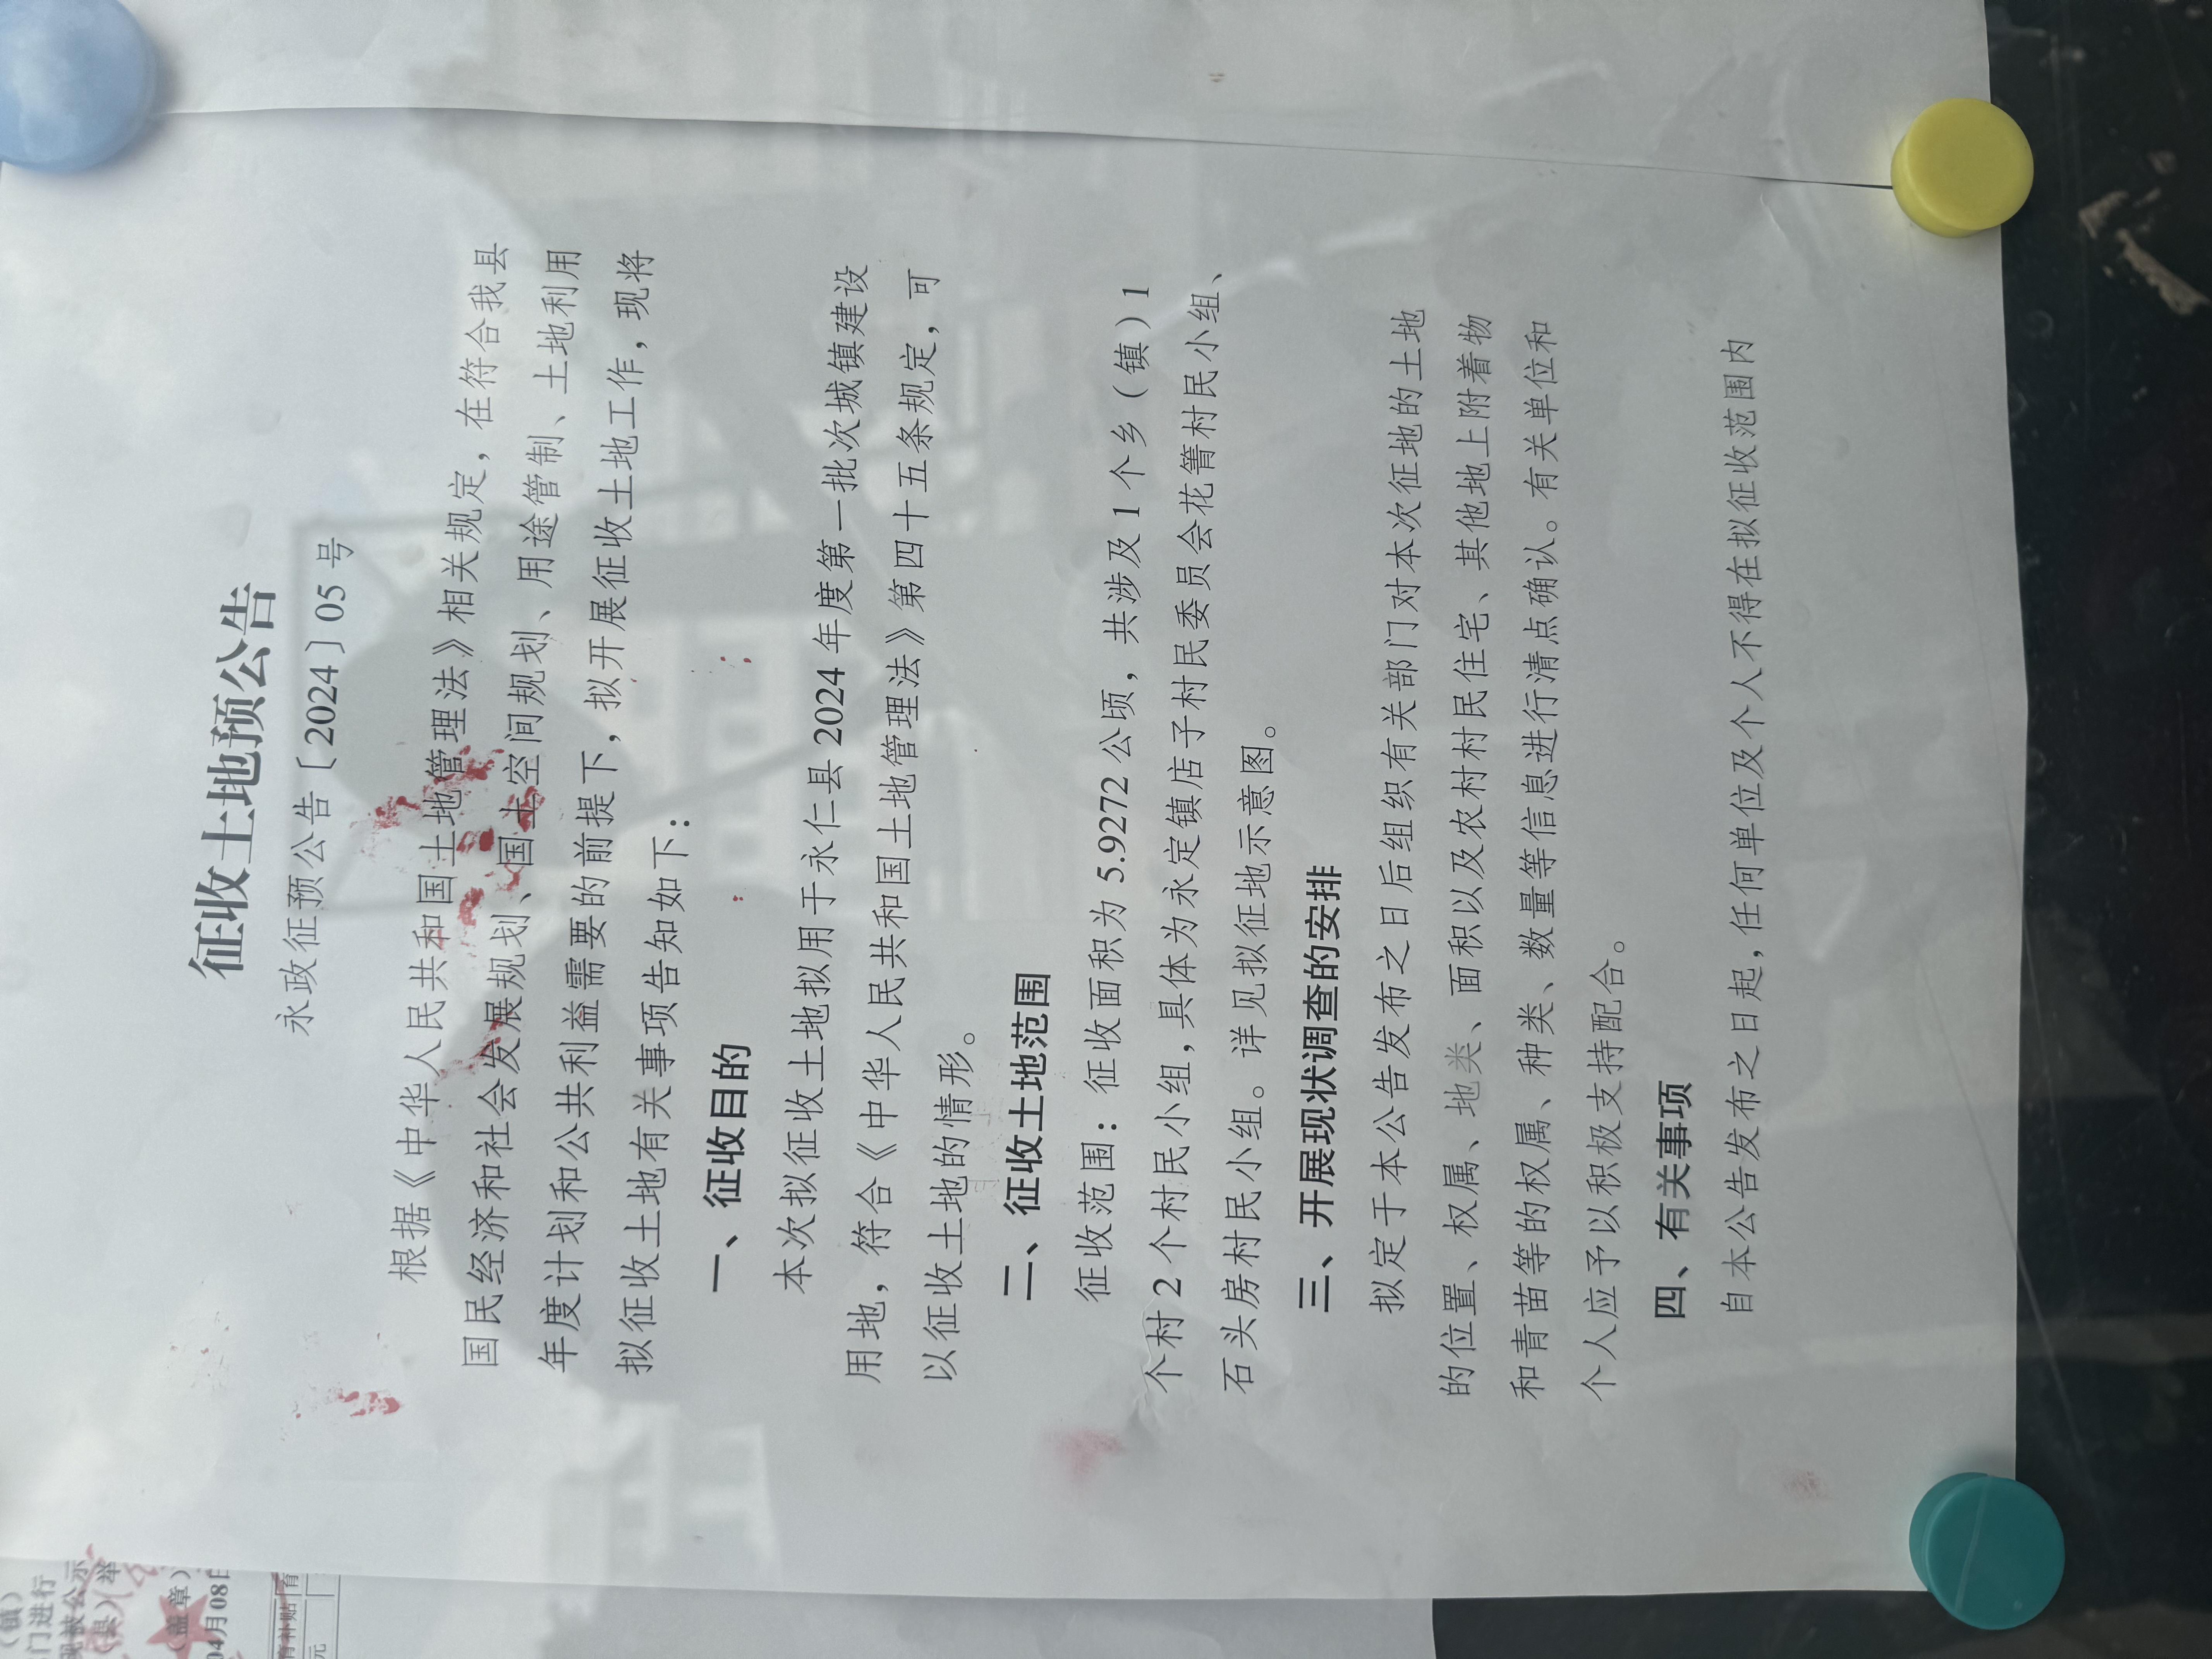 征收土地预公告
永政征预公告〔2024〕05号
根据《中华人民共和国土地管理法》相关规定，在符合我县
国民经济和社会发展规划、国土空间规划、用途管制、土地利用
年度计划和公共利益需要的前提下，拟开展征收土地工作，现将
拟征收土地有关事项告知如下：
一、征收目的
本次拟征收土地拟用于永仁县2024年度第一批次城镇建设
用地，符合《中华人民共和国土地管理法》第四十五条规定，可
以征收土地的情形。
二、征收土地范围
征收范围：征收面积为5.9272公顷，共涉及1个乡（镇）1
个村2个村民小组，具体为永定镇店子村民委员会花箐村民小组、
石头房村民小组。详见拟征地示意图。
三、开展现状调查的安排
拟定于本公告发布之日后组织有关部门对本次征地的土地
的位置、权属、地类、面积以及农村村民住宅、其他地上附着物
和青苗等的权属、种类、数量等信息进行清点确认。有关单位和
个人应予以积极支持配合。
四、有关事项
自本公告发布之日起，任何单位及个人不得在拟征收范围内
（镇）
门进行
现被公示
（县）举
（盖章）
04月08日
育补贴
元